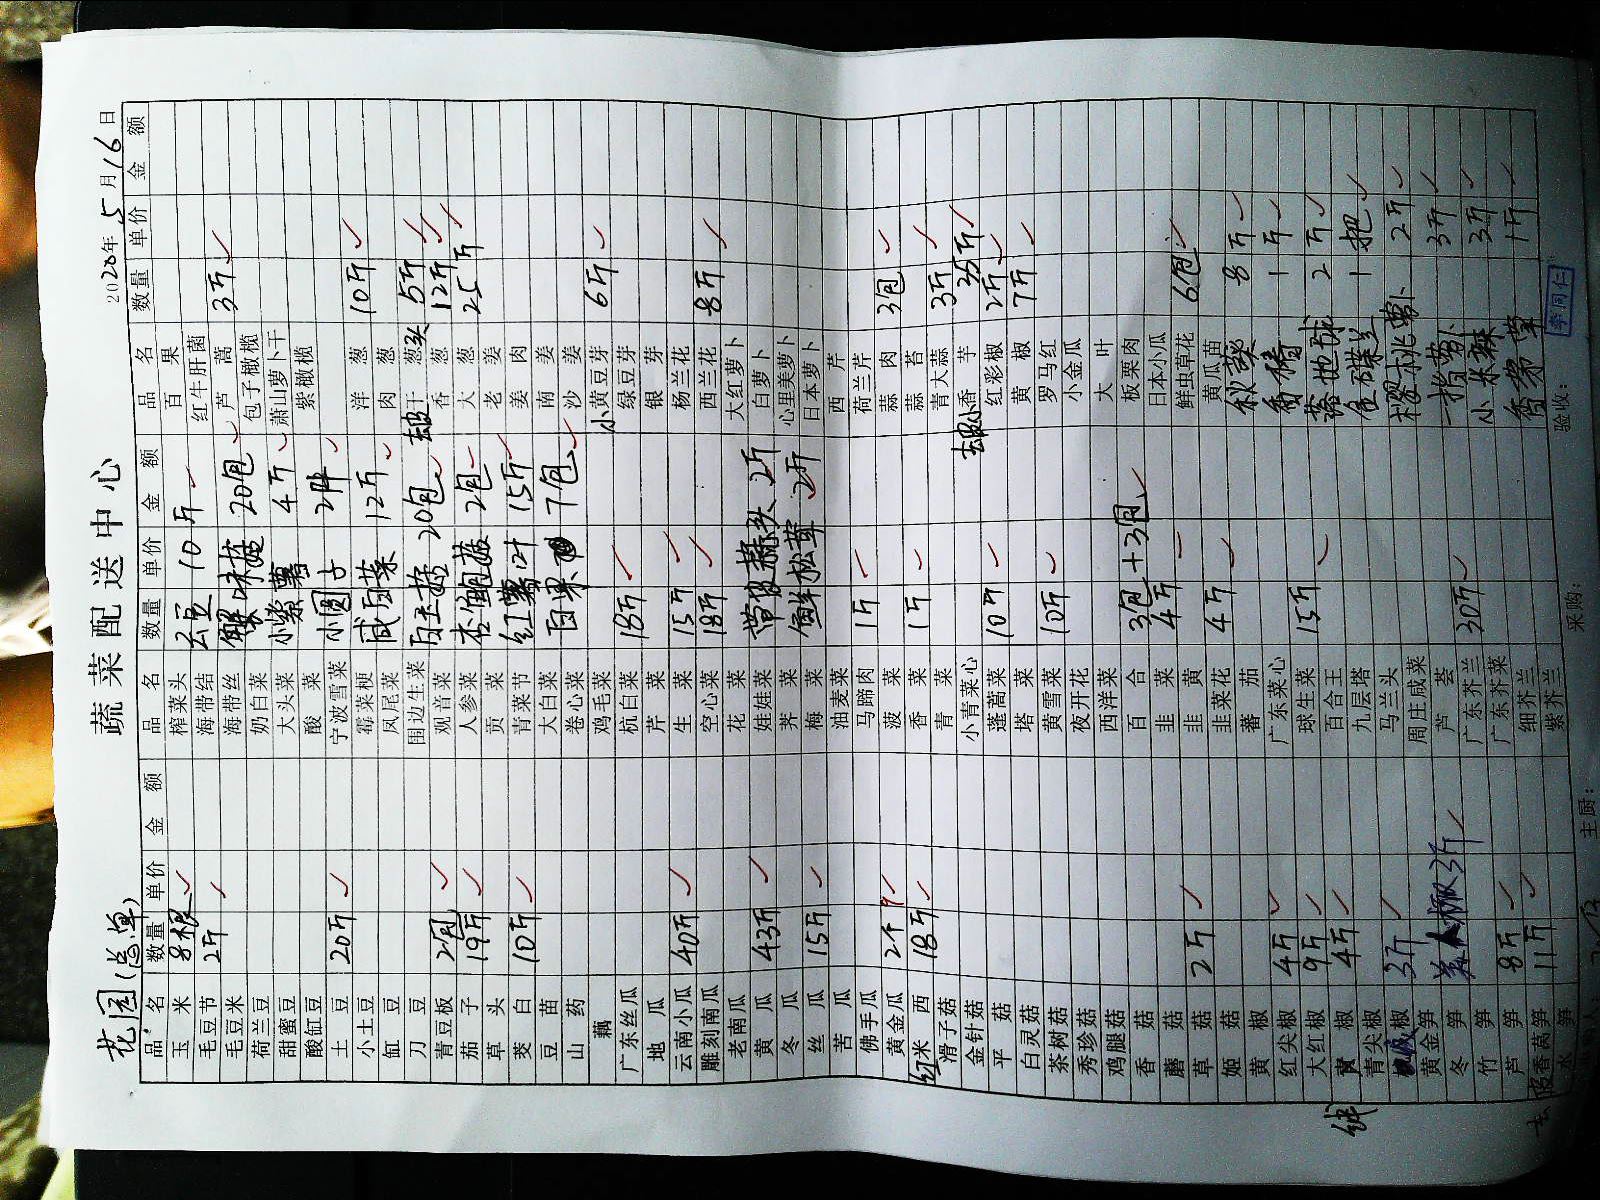 蔬菜配送中心
花园(总单)
2020年5月16日
品名 数量 单价 金额
玉米 8根
毛豆节 2斤
毛豆米
荷兰豆
甜蜜豆
酸缸豆
土豆 20斤
小土豆
缸豆
刀豆
青豆板 2包
茄子 19斤
草头
茭白 10斤
豆苗
山药
藕
广东丝瓜
地瓜
云南小瓜 40斤
雕刻南瓜
老南瓜
黄瓜 43斤
冬瓜
丝瓜 15斤
苦瓜
佛手瓜
黄金瓜 2个
红米西 18斤
滑子菇
金针菇
平菇
白灵菇
茶树菇
秀珍菇
鸡腿菇
香菇
蘑菇
草菇 2斤
姬菇
黄椒
红尖椒 4斤
大红椒 9斤
椒 4斤
青尖椒
3斤
黄金笋
椒 3斤
冬笋
竹笋
芦笋 8斤
去皮香莴笋 11斤
水笋
品名 数量 单价 金额
榨菜头 云豆 10斤
海带结
海带丝 蟹味菇 20包
奶白菜
大头菜 小紫薯 4斤
酸菜
宁波雪菜 小圆子
霉菜梗
凤尾菜 咸白菜 12斤
围边生菜 白玉菇 20包
观音菜
人参菜 杏鲍菇 2包
贡菜
青菜节 红薯叶 15斤
大白菜 白果 7包
卷心菜
鸡毛菜
杭白菜 18斤
芹菜
生菜 15斤
空心菜 18斤
花菜
娃娃菜 带皮蒜头 2斤
荠菜
梅菜 鲜松茸 2斤
油麦菜
马蹄肉 1斤
菠菜
香菜 1斤
青菜
小青菜心
蓬蒿菜 10斤
塔菜
黄雪菜 10斤
夜开花
西洋菜
百合 3包+3包
韭菜 4斤
韭黄
韭菜花 4斤
蕃茄
广东菜心
球生菜 15斤
百合王
九层塔
马兰头
周庄咸菜
芦荟
广东芥兰 30斤
广东芥菜
细芥兰
紫芥兰
品名 数量 单价 金额
百果
红牛肝菌
芦蒿 3斤
包子橄榄
萧山萝卜干
紫橄榄
洋葱 10斤
肉葱
去皮干葱头 5斤
香葱 12斤
大葱 25斤
老姜
姜肉
南姜
沙姜
小黄豆芽 6斤
绿豆芽
银芽
杨兰花
西兰花 8斤
大红萝卜
白萝卜
心里美萝卜
日本萝卜
西芹
荷兰芹
蒜肉 3包
蒜苔
青大蒜 3斤
去皮小香芋 35斤
红彩椒 2斤
黄椒 7斤
罗马红
小金瓜
大叶
板栗肉
日本小瓜
鲜虫草花 6包
黄瓜苗
秋葵 8斤
香椿 1斤
落地球 2斤
金碟兰 1把
樱桃萝卜 2斤
一指萝卜 3斤
小米椒 3斤
香茅草 1斤
主厨:
采购:
验收: 李同仁